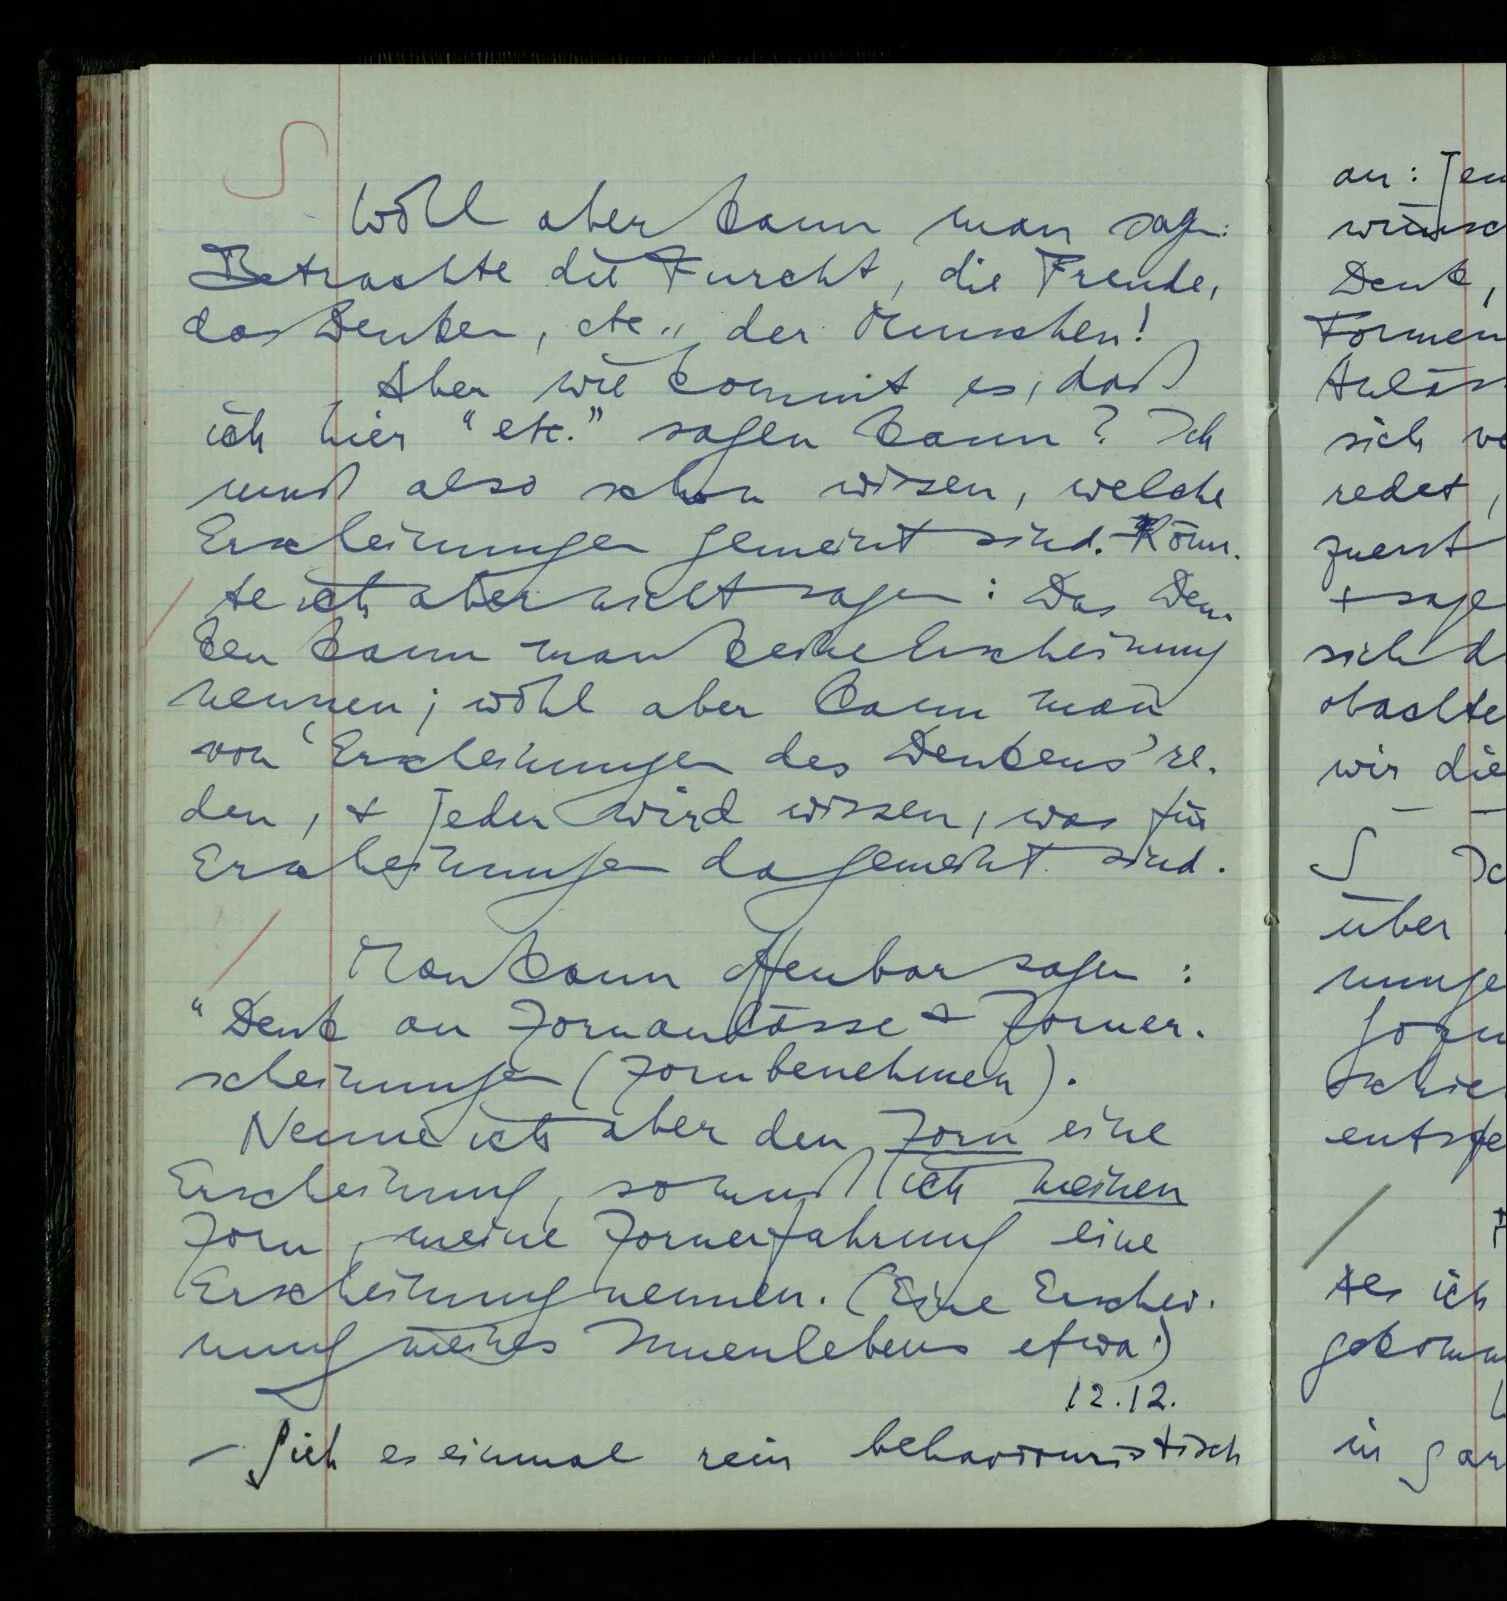 Wohl aber kann man sagen:
Betrachte die Furcht, die Freude,
das Denken, etc., der Menschen!
Aber wie kommt es, daß
ich hier "etc." sagen kann? Ich
muß also schon wissen, welche
Erscheinungen gemeint sind. Könn-
te ich aber nicht sagen: Das Den-
ken kann man keine Erscheinung
nennen; wohl aber kann man
von 'Erscheinungen des Denkens' re-
den, + jeder wird wissen, was für
Erscheinungen da gemeint sind.
Man kann offenbar sagen:
"Denk an Zornanlässe + Zorner-
scheinungen (Zornbenehmen).
Nenne ich aber den Zorn eine
Erscheinung, so muß ich meinen
Zorn, meine Zornerfahrung eine
Erscheinung nennen. (Eine Erschei-
nung meines Innenlebens etwa.)
12.12.
– Sieh es einmal rein behaviouristisch
an: Jem
wünsc
Denk,
Formen
Anläss
sich vo
redet,
zuerst
+ sage
sich d
obachte
wir die
S Ic
über
nunge
Zorn
schie
entspe
/ F
als ich
gekomm
in gar